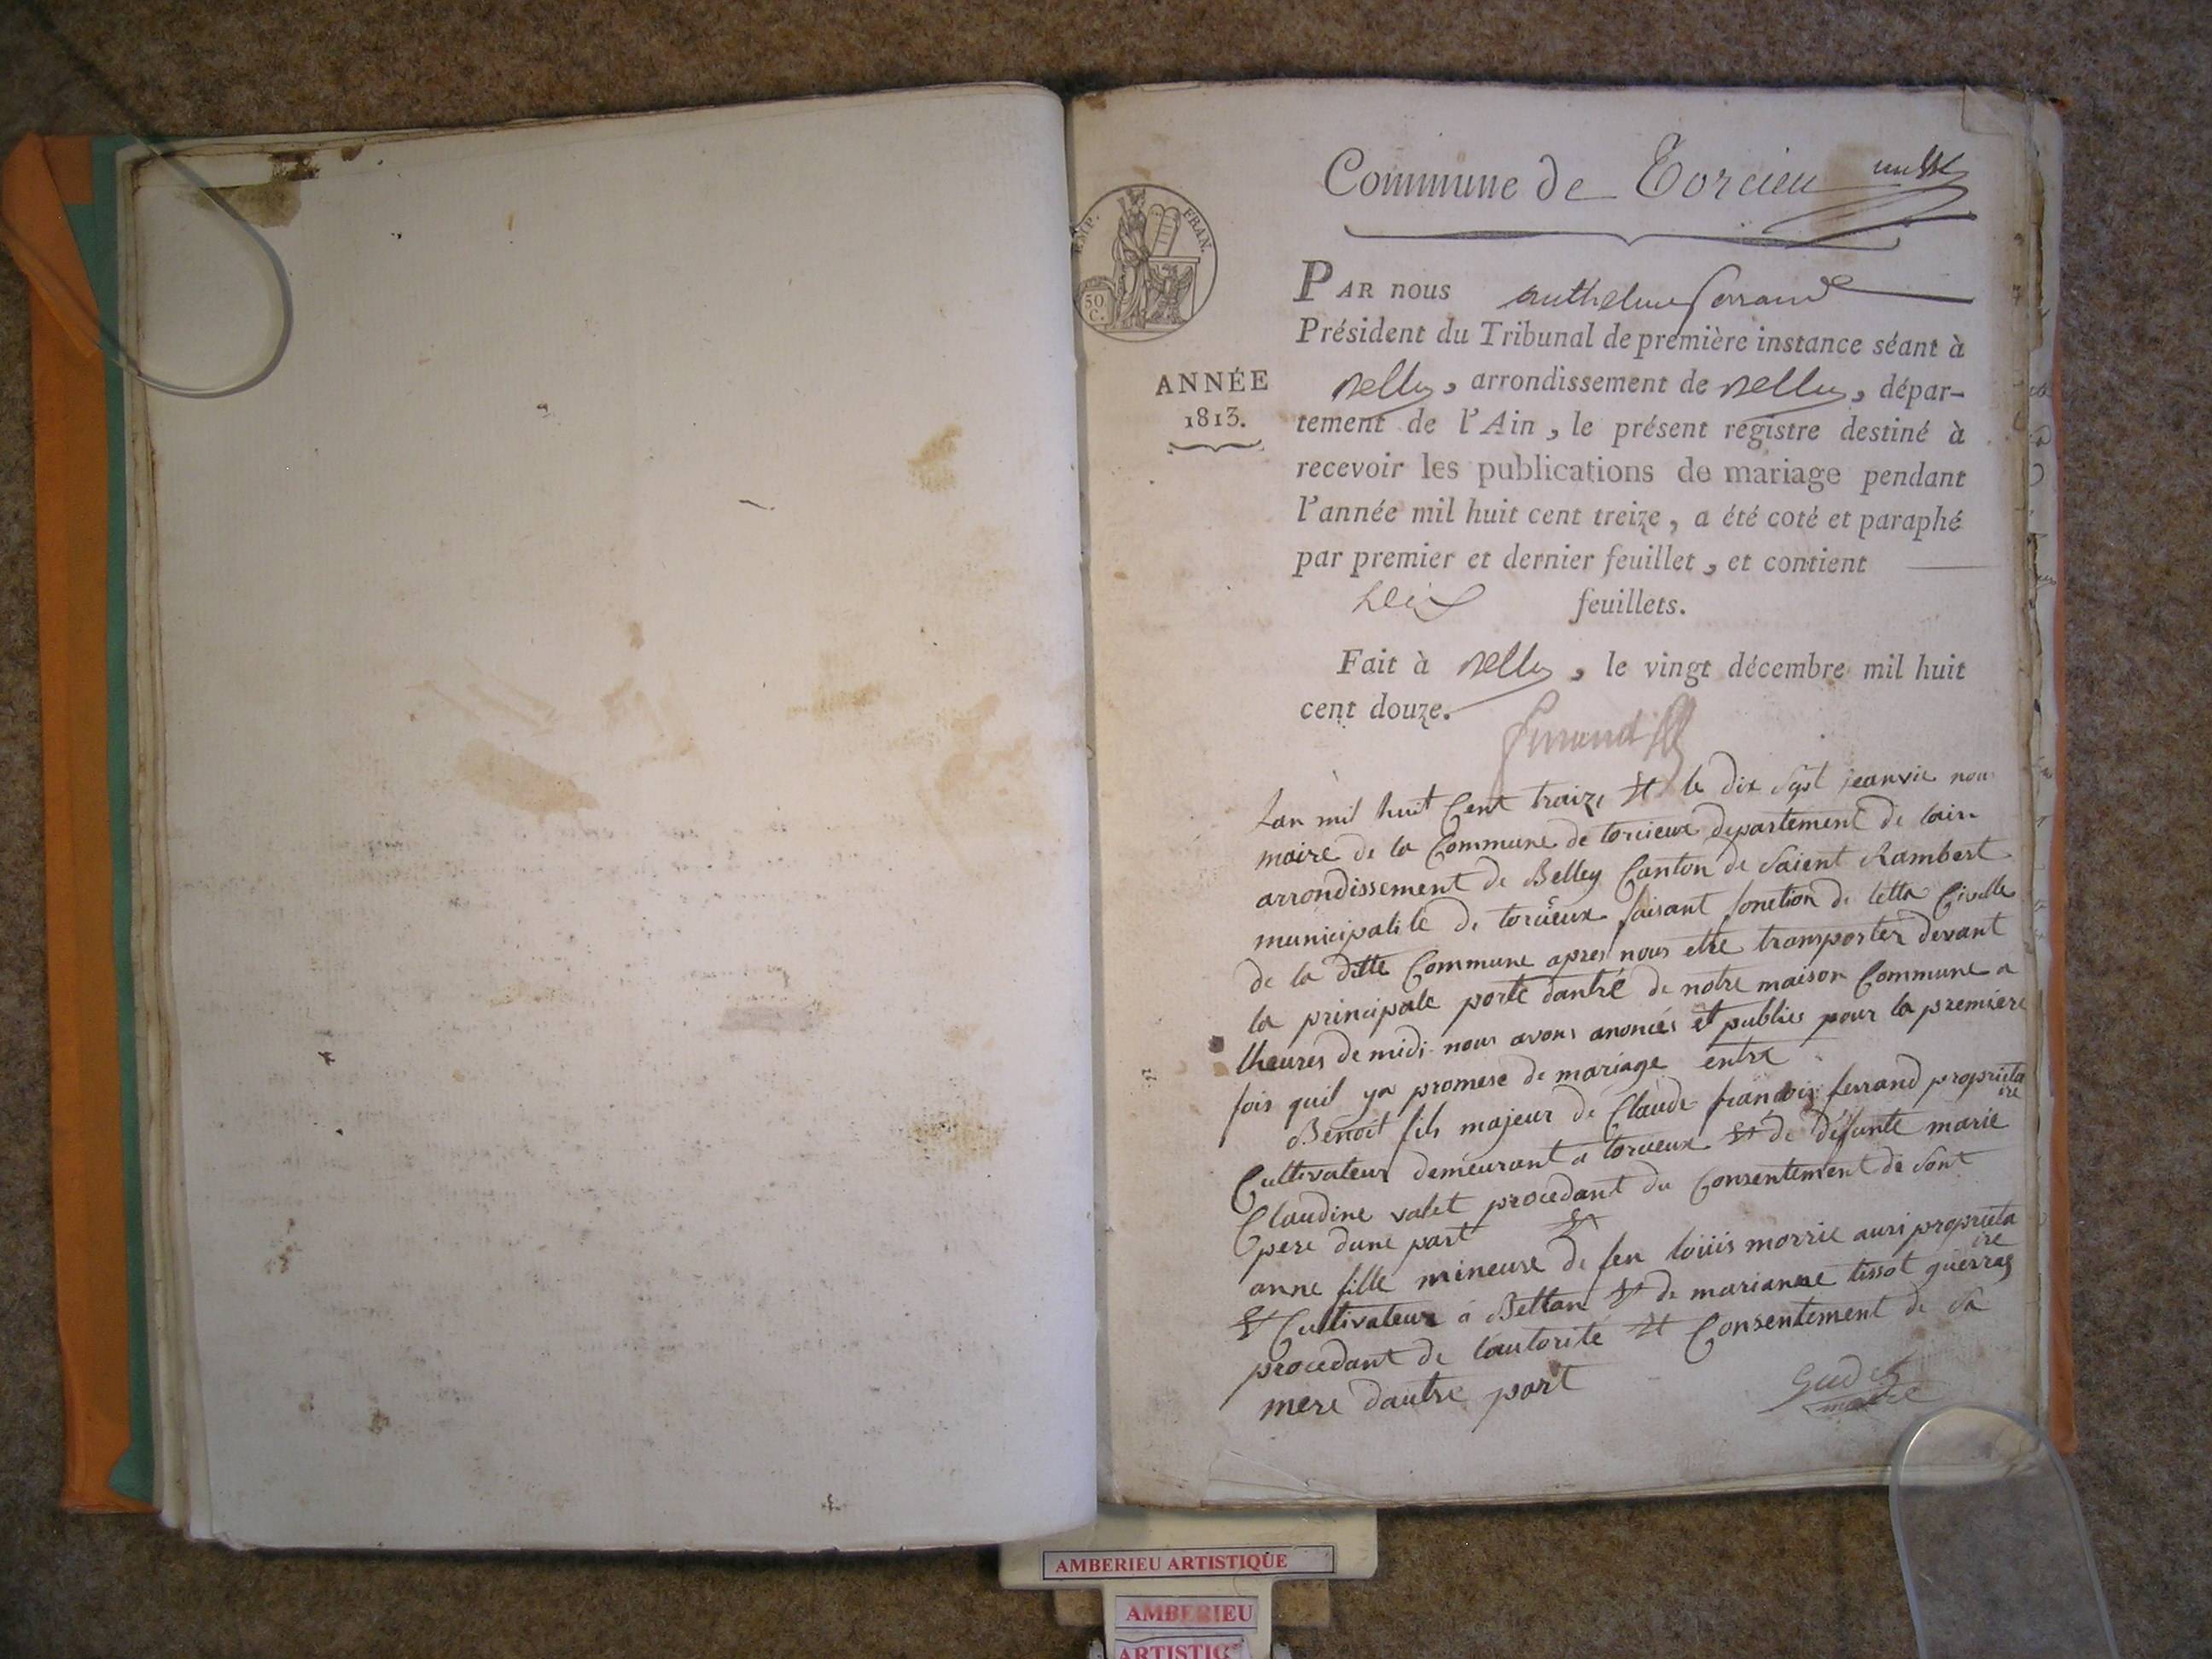 Commune de Torcieu
EMP. FRAN.
50
C.
PAR nous anthelme ferrand
Président du Tribunal de première instance séant à
ANNÉE
1813.
Belley, arrondissement de Belley, dépar-
tement de l'Ain, le présent régistre destiné à
recevoir les publications de mariage pendant
l'année mil huit cent treize, a été coté et paraphé
par premier et dernier feuillet, et contient
feuillets.
Fait à Belley, le vingt décembre mil huit
cent douze.
ferrand
Lan mil huit Cent traize et le dix sept jeanvie nou
maire de la Commune de torcieux departement de lain
arrondissement de Belley Canton de saient Rambert
municipalite de torcieux faisant fonction de letta Civille
de la ditte Commune apres nous etre transporter devant
la principale porte dantré de notre maison Commune a
lheures de midi nous avons anoncés et publies pour la premiere
fois quil ya promese de mariage entre
Benoit fils majeur de Claude francois ferrand proprieta
ire
Cultivateur demeurant a torcieux et de defunte marie
Claudine valet procedant du Consentement de sont
pere dune part et
anne fille mineure de feu loüis morrie ausi proprieta
ire
et Cultivateur a Bettan et de marianne tissot guerras
procedant de lautorité et Consentement de sa
mere dautre part
maire
AMBERIEU ARTISTIQUE
AMBERIEU
ARTISTIQ